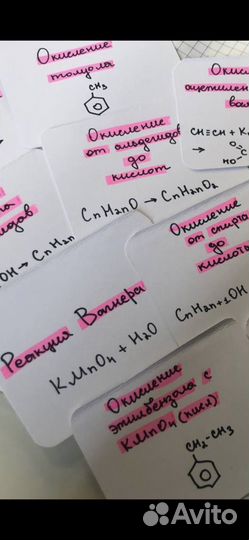 Окисление
толуола
CH3
Окисле
ацетилен
во
CH≡CH + K
→
O
C
HO
Окисление
от альдегидов
до
кислот
CnH2nO → CnH2nO2
OH → CnH2n
Окисление
от спирт
до
кислоты
CnH2n+1OH
Реакция Вагнера
KMnO4 + H2O
Окисление
этилбензола с
KMnO4 (кисл)
CH2-CH3
Avito